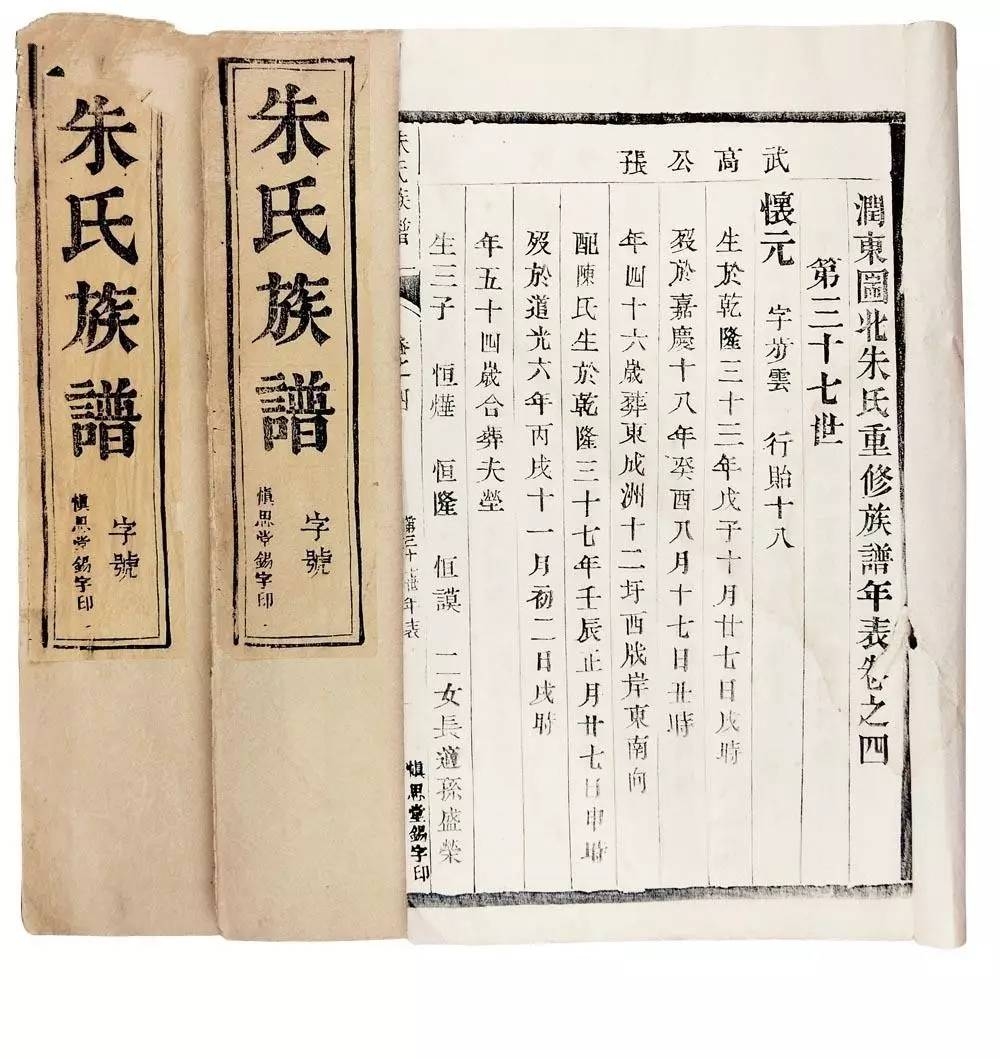 潤東圌北朱氏重修族譜年表卷之四
第三十七世
武高公張
懷元 字芳雲 行貽十八
生於乾隆三十三年戊子十月廿七日戌時
歿於嘉慶十八年癸酉八月十七日丑時
年四十六歲葬東成洲十二圩西岸東南向
配陳氏生於乾隆三十七年壬辰正月廿七日申時
歿於道光六年丙戌十一月初二日戌時
年五十四歲合葬夫塋
生三子 恒燁 恒隆 恒謨 二女長適孫盛榮
朱氏族譜 卷之四 第三十七世年表 慎思堂錫字印
朱氏族譜
字號
慎思堂錫字印
朱氏族譜
字號
慎思堂錫字印